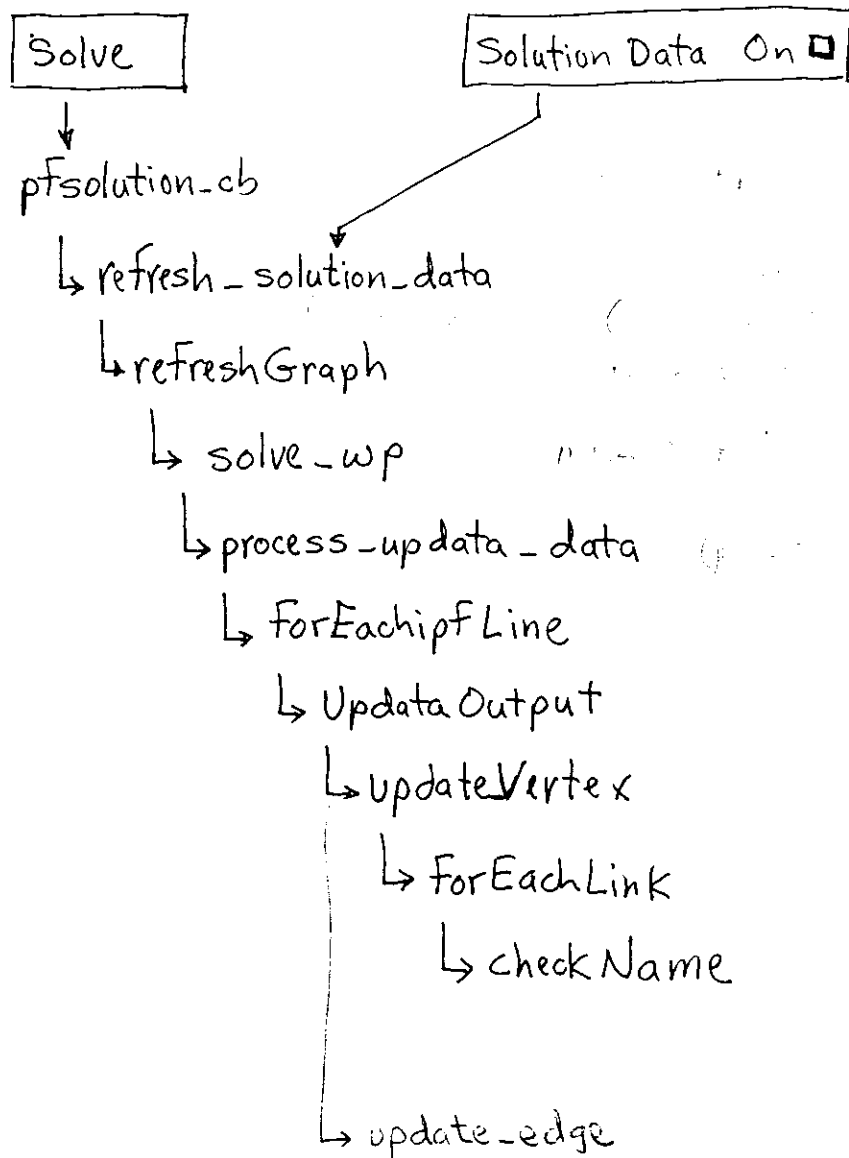 Solve
Solution Data On
pfsolution_cb
refresh_solution_data
refreshGraph
solve_wp
process_updata_data
forEachipfLine
UpdataOutput
updateVertex
forEachLink
checkName
update_edge